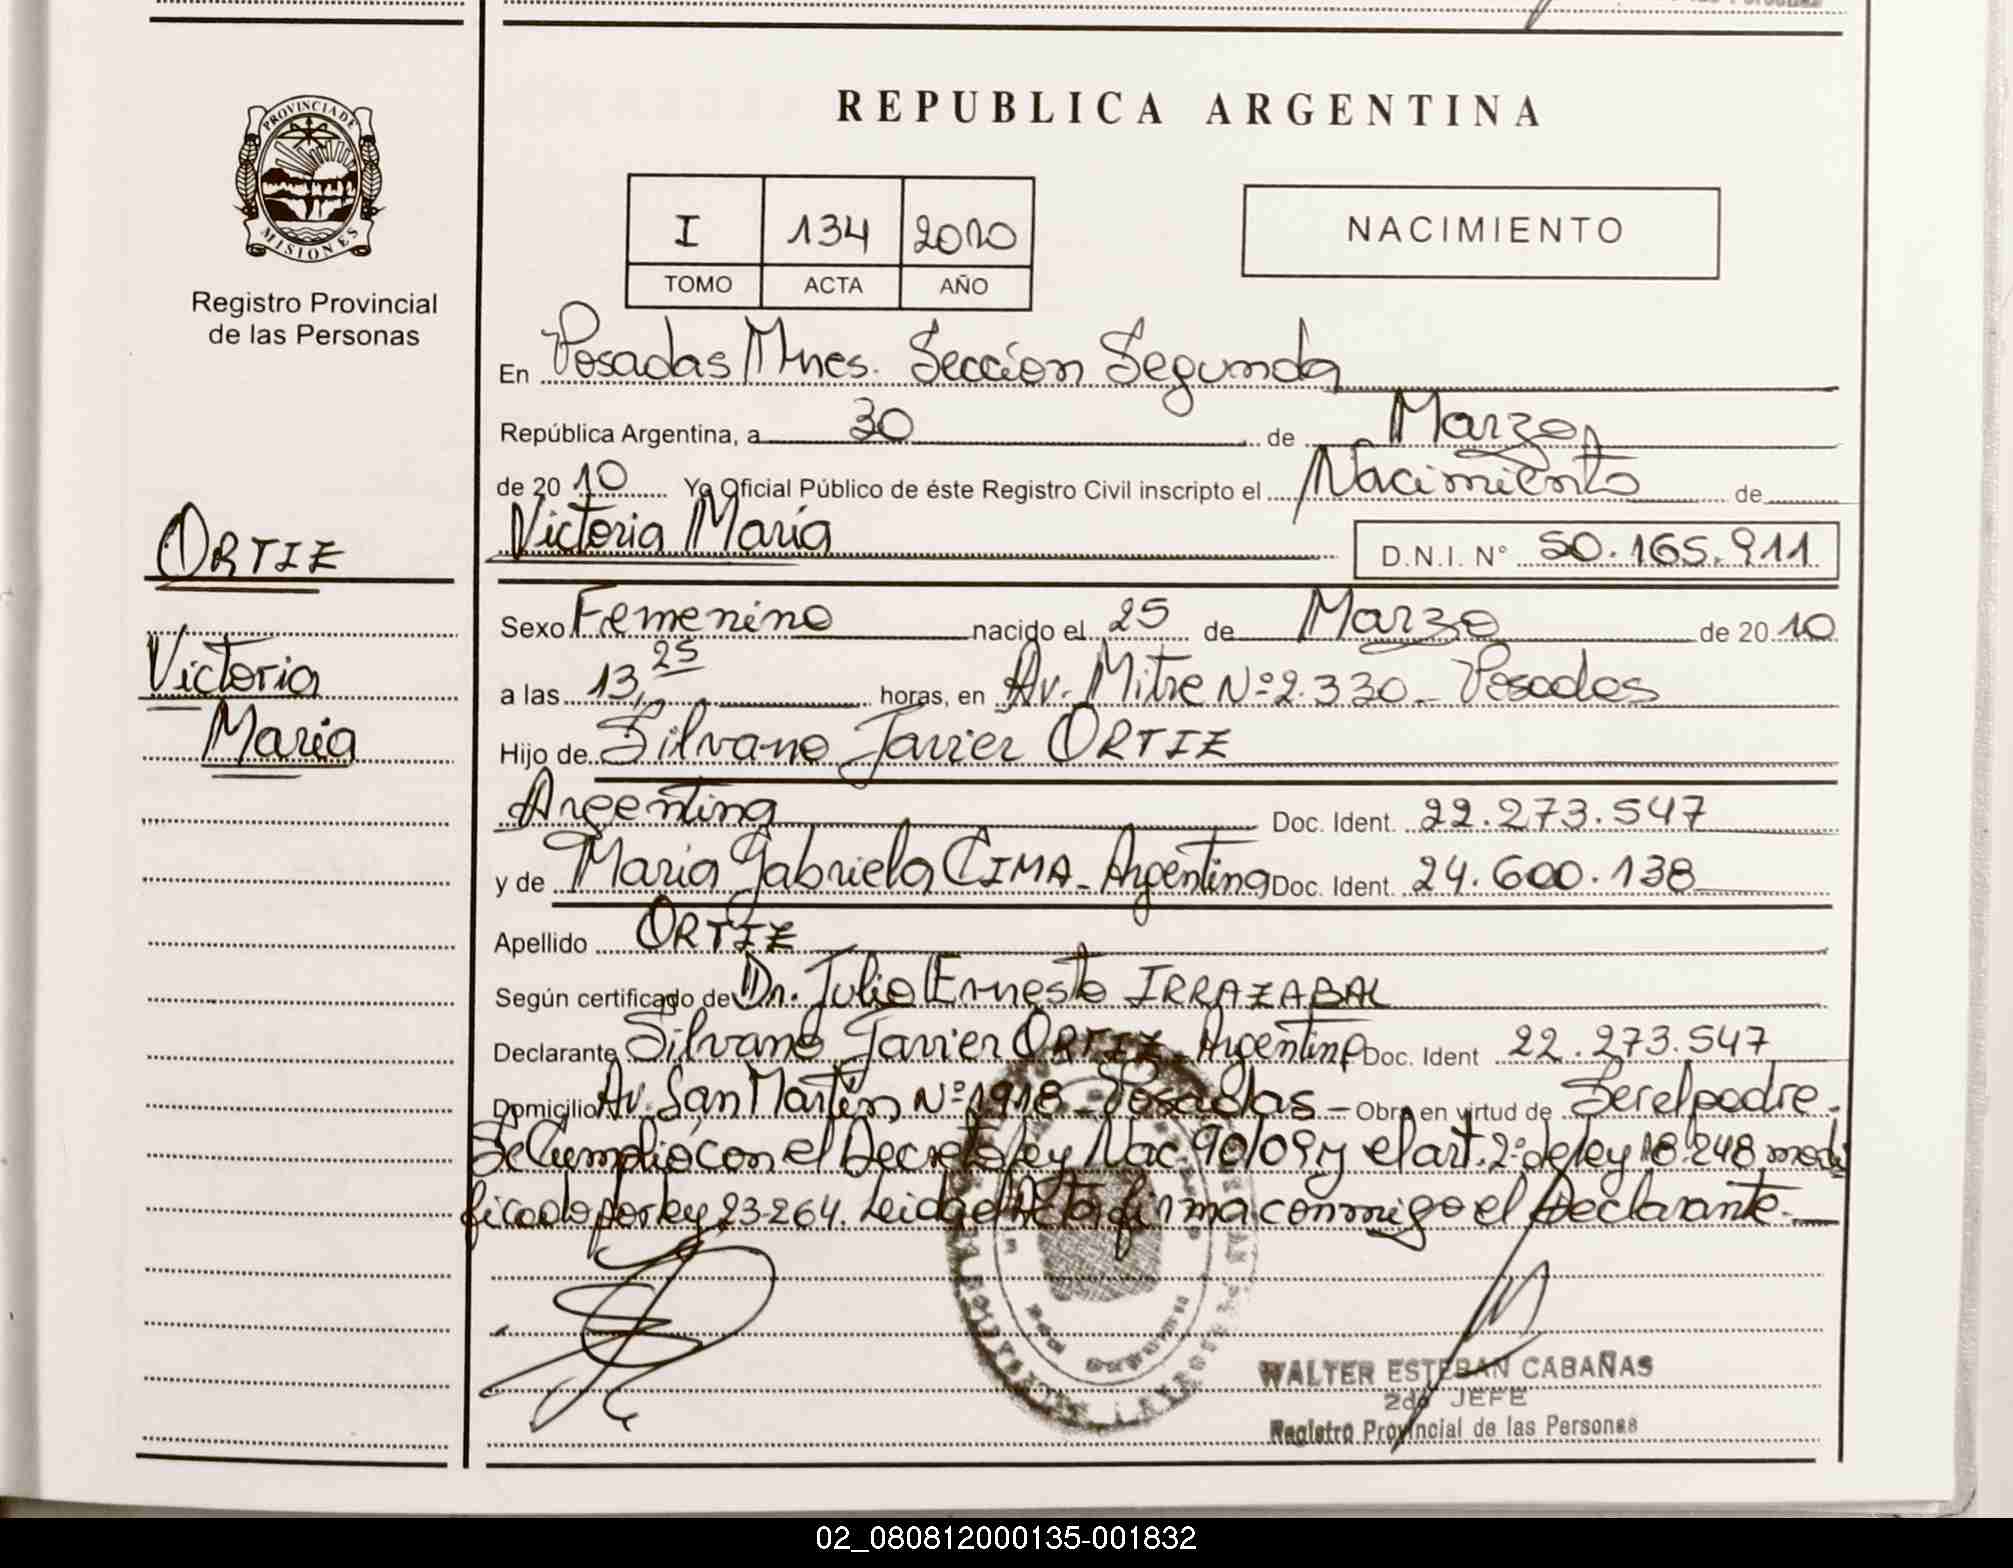 PROVINCIA DE
MISIONES
Registro Provincial
de las Personas
ORTIZ
Victoria
María
REPUBLICA ARGENTINA
I 134 2010
TOMO ACTA AÑO
NACIMIENTO
En Posadas Mnes. Seccion Segunda
República Argentina, a 30 de Marzo
de 20 10 Yo Oficial Público de éste Registro Civil inscripto el Nacimiento de
Victoria María D.N.I. N° 50.165.911
Sexo Femenino nacido el 25 de Marzo de 20 10
a las 13,25 horas, en Av. Mitre Nº 2.330 - Posadas
Hijo de Silvano Javier ORTIZ
Argentino Doc. Ident. 22.273.547
y de María Gabriela CIMA - Argentina Doc. Ident. 24.600.138
Apellido ORTIZ
Según certificado de Dr. Julio Ernesto IRRAZABAL
Declarante Silvano Javier ORTIZ - Argentino Doc. Ident 22.273.547
Domicilio Av. San Martín Nº 1918 - Posadas - Obra en virtud de Ser el padre.
Se Cumplió con el Decreto ley Nac. 90/09 y el art. 2º de ley 18.248 modi
ficado por ley 23.264. Leida el Acta firma conmigo el Declarante.
WALTER ESTEBAN CABAÑAS
2do JEFE
Registro Provincial de las Personas
02_080812000135-001832